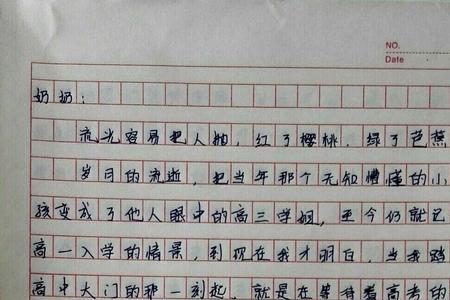 NO.
Date
奶奶：
流光容易把人抛，红了樱桃，绿了芭蕉
岁月的流逝，把当年那个无知懵懂的小
孩变成了他人眼中的高三学姐，至今仍就记
高一入学的情景，到现在我才明白，当我踏
高中大门的那一刻起，就是在等待着高考的